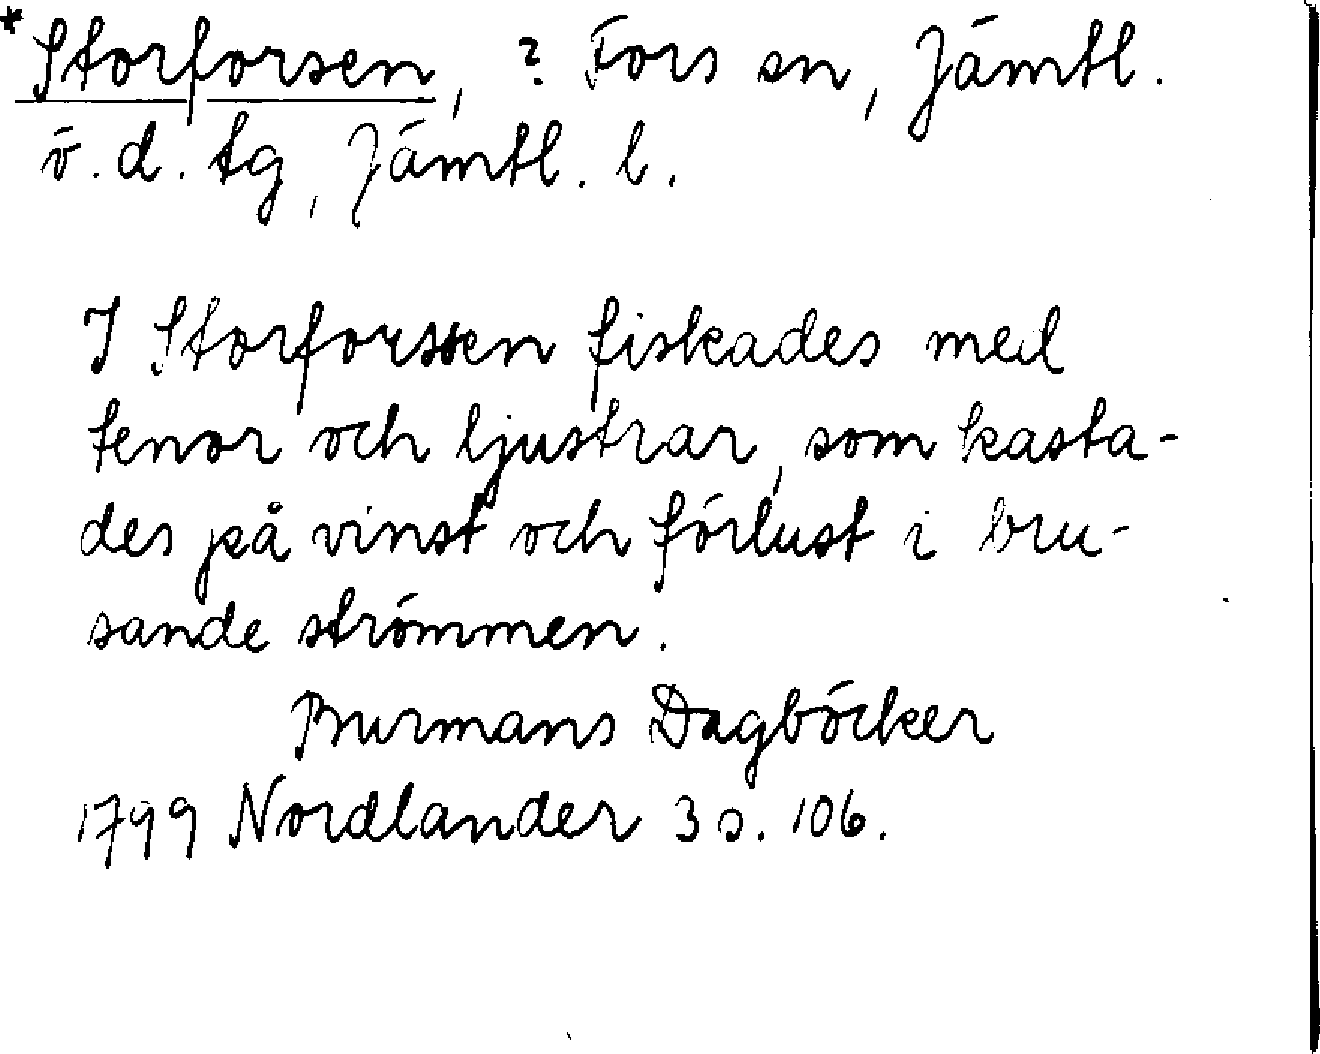 *Storforsen, ? Fors sn, Jämtl.
ö.d. tg, Jämtl. l.
I Storforssen fiskades med
tenor och ljustrar, som kasta-
des på vinst och förlust i bru-
sande strömmen.
Burmans Dagböcker
1799 Nordlander 3 s. 106.